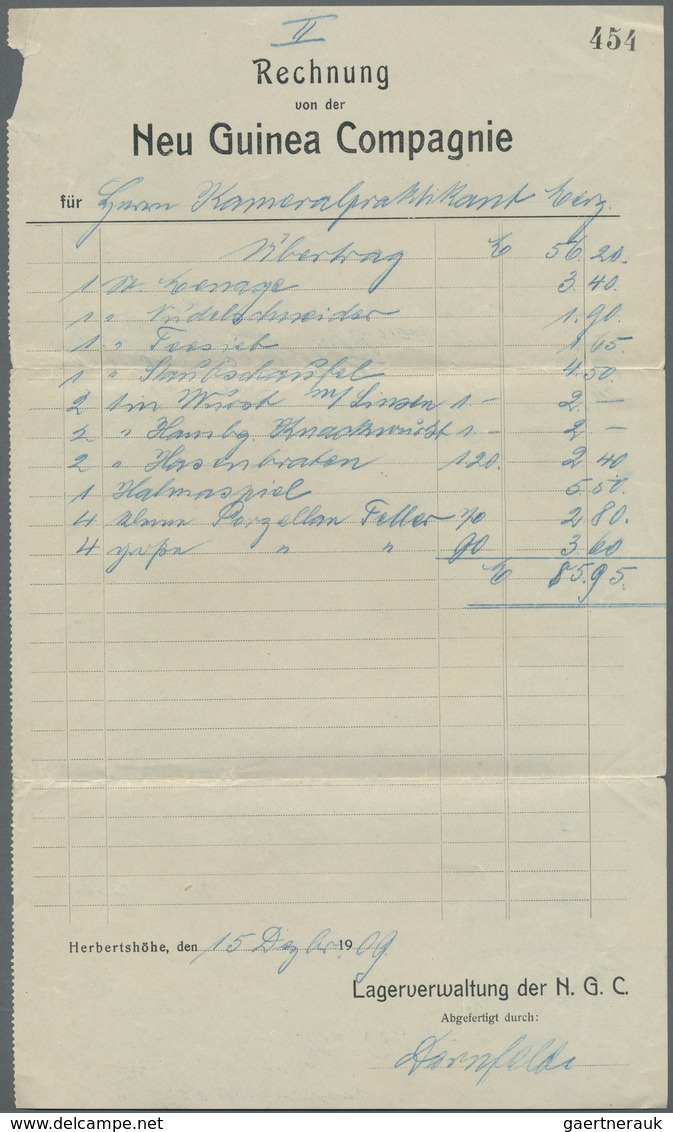 II
454
Rechnung
von der
Neu Guinea Compagnie
für Herrn Kameralpraktikant Merz.
Übertrag M 56.20.
1 St. Menage 3.40.
1 " Nudelschneider 1.90.
1 " Teesieb 1.65
1 " Staubschaufel 4.50.
2 Tin Wurst m/ Linsen 1.— 2.—
2 " Hambg. Knackwurst 1.— 2.—
2 " Hasenbraten 1.20. 2.40
1 Halmaspiel 5.50.
4 kleine Porzellan Teller 70 2.80.
4 große " " 90 3.60
M 85.95.
Herbertshöhe, den 15 Dezbr. 1909.
Lagerverwaltung der N. G. C.
Abgefertigt durch:
gaertnerauk